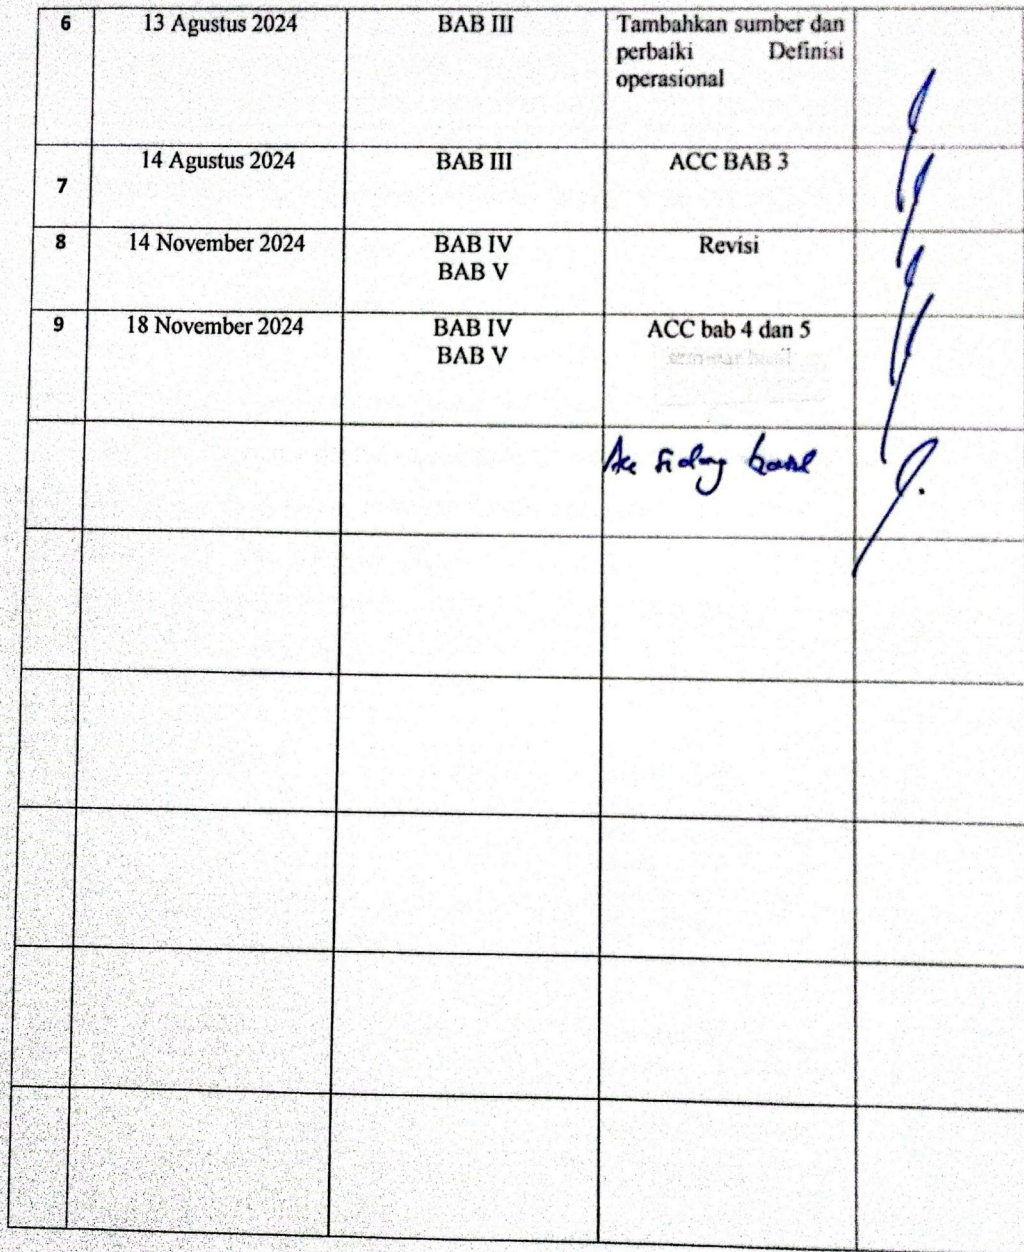 6 13 Agustus 2024 BAB III Tambahkan sumber dan
perbaiki Definisi
operasional
14 Agustus 2024 BAB III ACC BAB 3
7
8 14 November 2024 BAB IV Revisi
BAB V
9 18 November 2024 BAB IV ACC bab 4 dan 5
BAB V seminar hasil
Acc sidang hasil